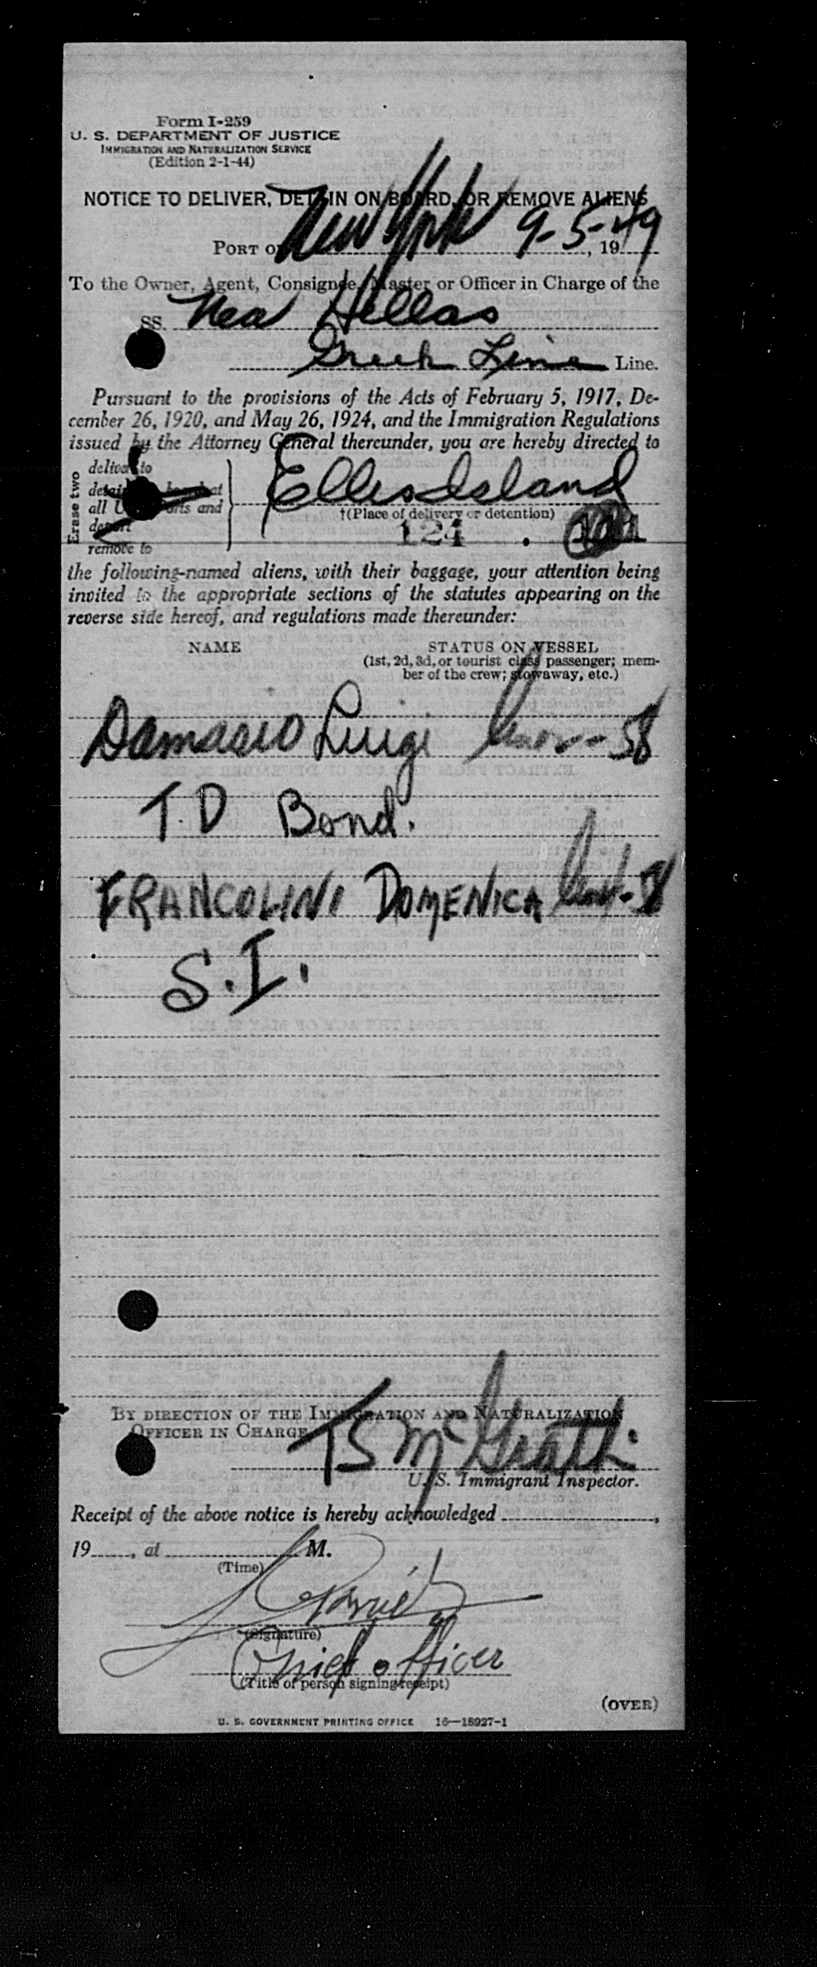 Form I-259
U. S. DEPARTMENT OF JUSTICE
IMMIGRATION AND NATURALIZATION SERVICE
(Edition 2-1-44)
NOTICE TO DELIVER, DETAIN ON BOARD, OR REMOVE ALIENS
PORT OF New York 9-5-, 1949
To the Owner, Agent, Consignee, Master or Officer in Charge of the
SS. Nea Hellas
Greek Line Line.
Pursuant to the provisions of the Acts of February 5, 1917, De-
cember 26, 1920, and May 26, 1924, and the Immigration Regulations
issued by the Attorney General thereunder, you are hereby directed to
Erase two
deliver to
detain at
all U ports and
deport
remove to
Ellis Island
†(Place of delivery or detention)
124
the following-named aliens, with their baggage, your attention being
invited to the appropriate sections of the statutes appearing on the
reverse side hereof, and regulations made thereunder:
NAME STATUS ON VESSEL
(1st, 2d, 3d, or tourist class passenger; mem-
ber of the crew; stowaway, etc.)
Damasio Luigi - 58
T.D Bond.
FRANCOLINI DOMENICA - 58
S.I.
BY DIRECTION OF THE IMMIGRATION AND NATURALIZATION
OFFICER IN CHARGE
TS McGrath
U. S. Immigrant Inspector.
Receipt of the above notice is hereby acknowledged ,
19 , at M.
(Time)
(Signature)
Chief officer
(Title of person signing receipt)
(OVER)
U. S. GOVERNMENT PRINTING OFFICE 16—18927-1